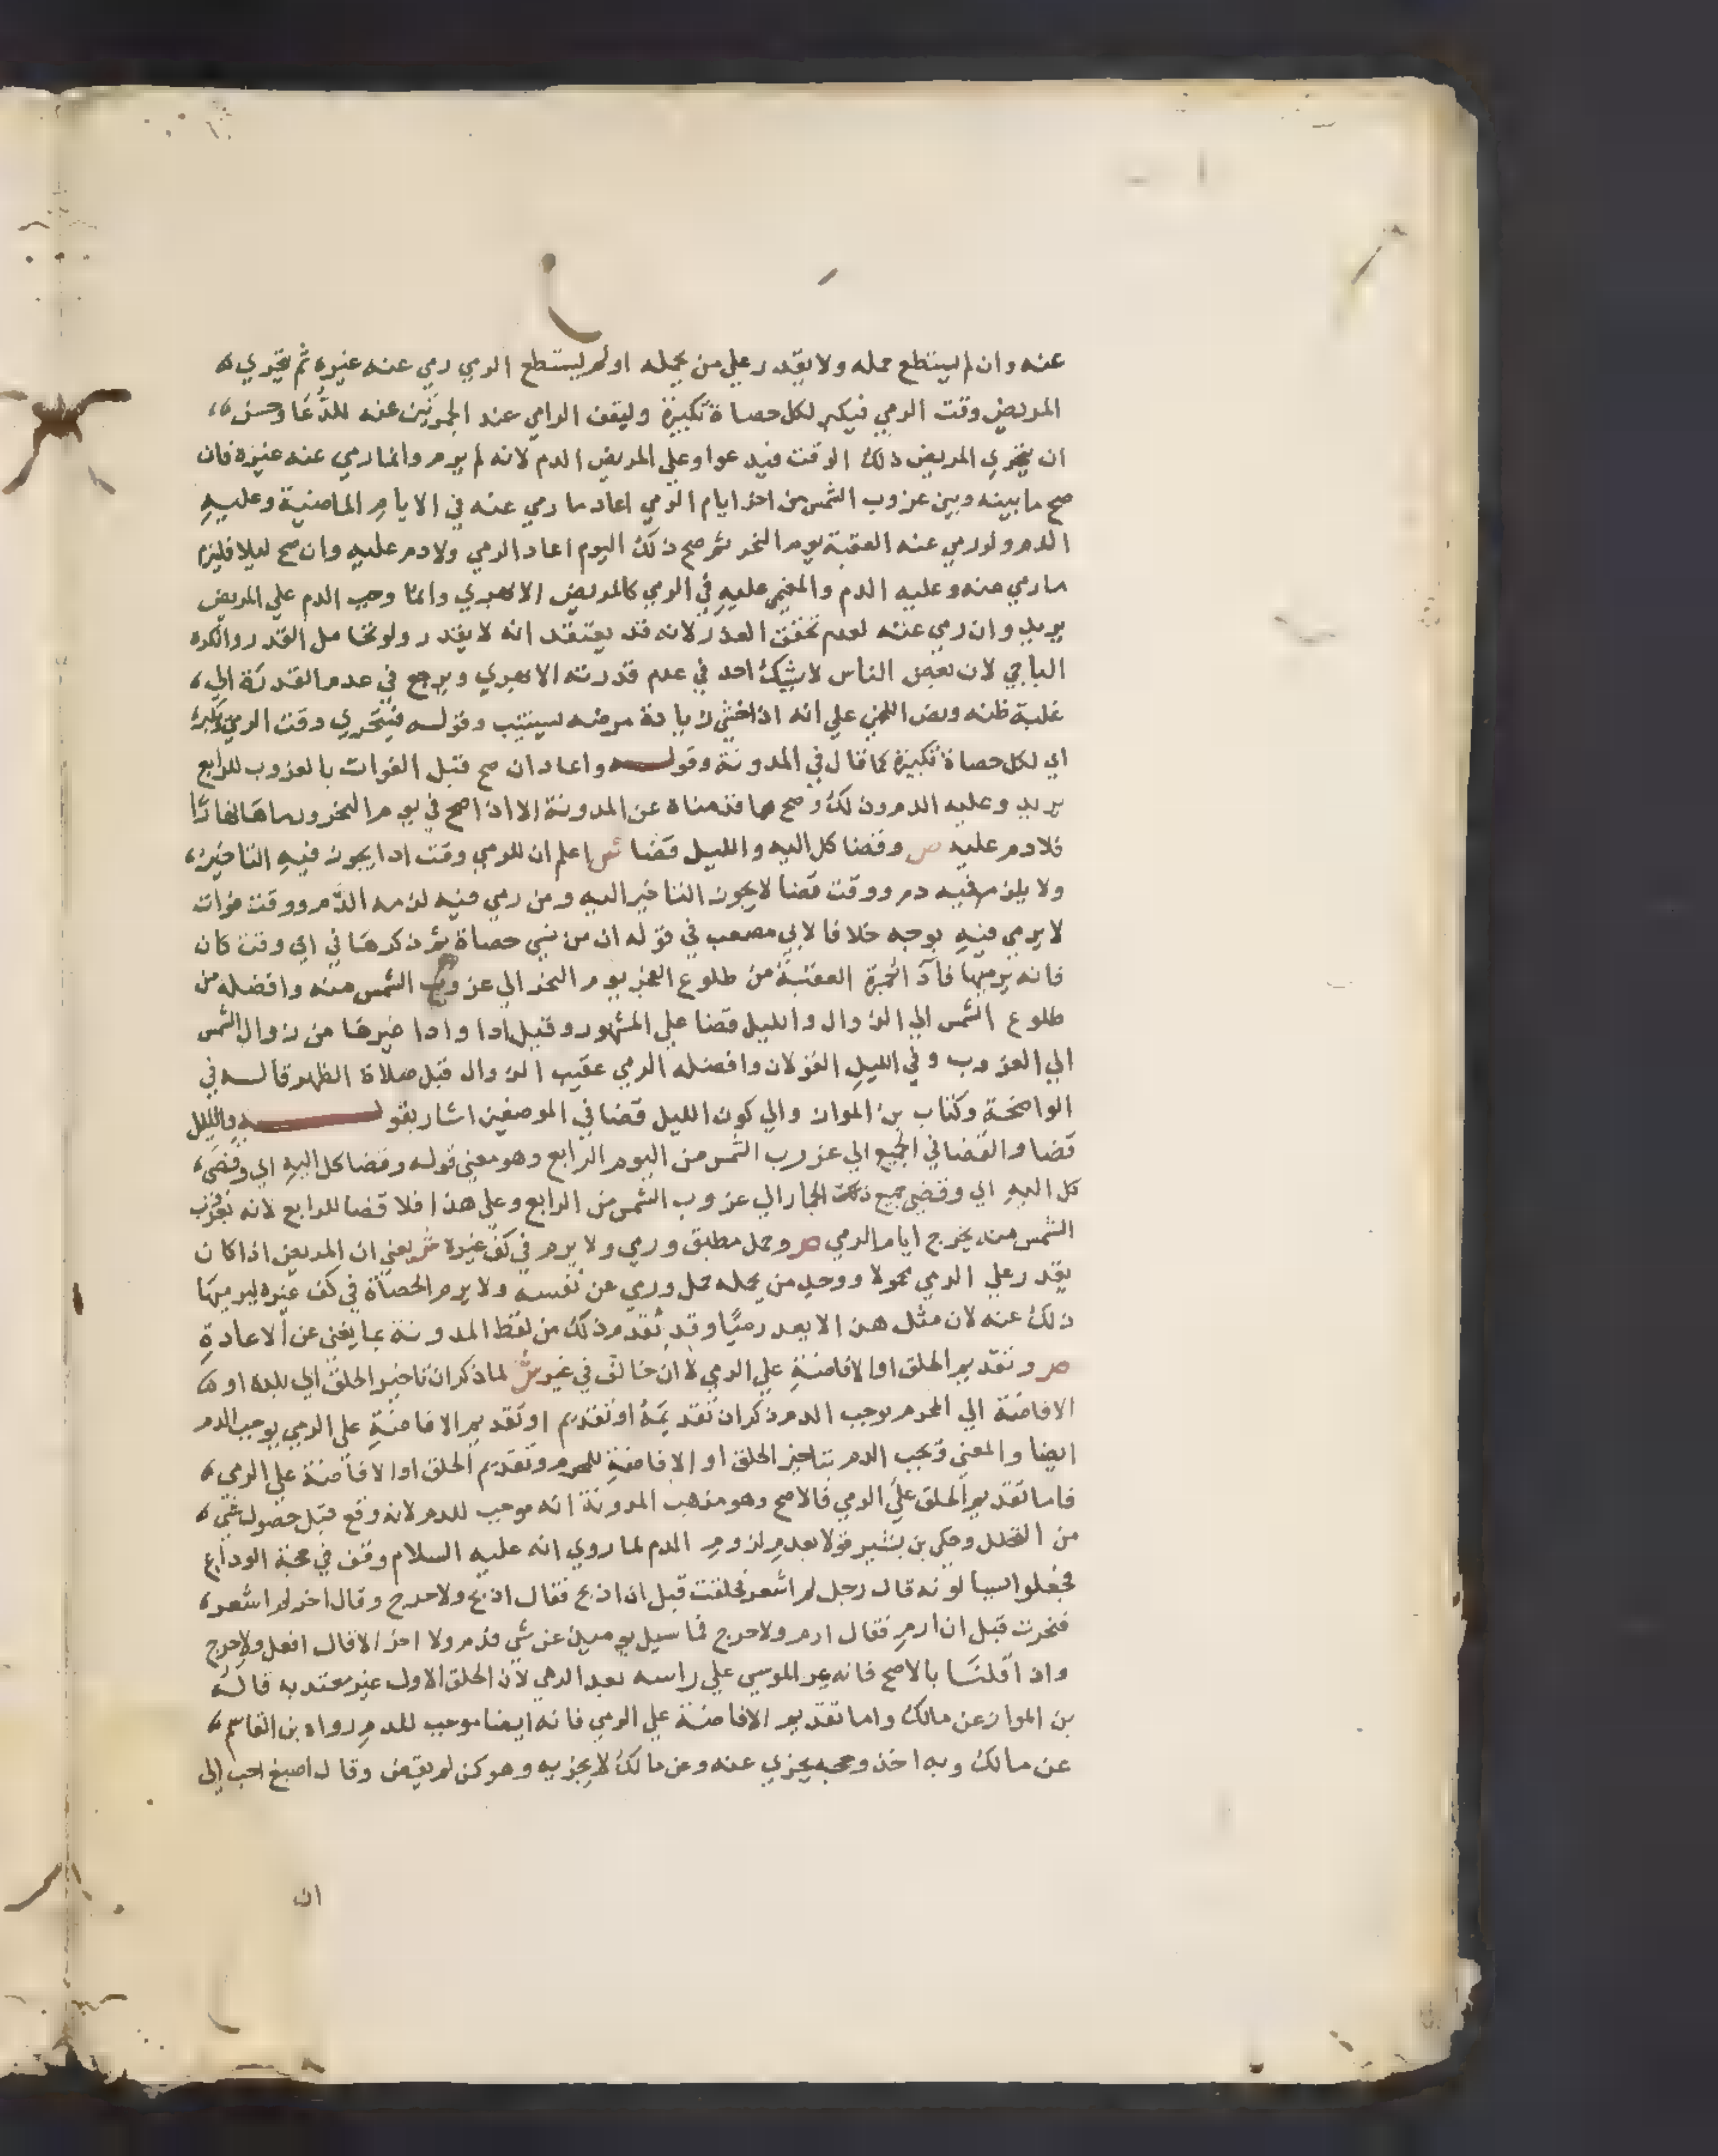 عنه وان لم يستطع حمله ولا يقدر علي من يحمله او لم يستطع الرمي رمي عنه غيره ثم يتحري
المريض وقت الرمي فيكبر لكل حصاة تكبيرة وليقف الرامي عند الجمرتين عنه للدعا وحسن
ان يتحري المريض ذلك الوقت فيدعوا وعلي المريض الدم لانه لم يرم وانما رمي عنه غيره فان
صح ما بينه وبين غروب الشمس من اخر ايام الرمي اعاد ما رمي عنه في الايام الماضية وعليه
الدم ولو رمي عنه العقبة يوم النحر ثم صح ذلك اليوم اعاد الرمي ولا دم عليه وان صح ليلا فليرم
ما رمي عنه وعليه الدم والمغمي عليه في الرمي كالمريض الابهري وانما وجب الدم علي المريض
يريد وان رمي عنه لعدم تحقق العذر لانه قد يعتقد انه لا يقدر ولو تحامل القدر والكره
الباجي لان بعض الناس لا يشك احد في عدم قدرته الابهري ويرجع في عدم القدرة الي
غلبة ظنه ونص اللخمي علي انه اذا خشي زيادة مرضه يستنيب وقوله فيتحري وقت الرمي وكبر
اي لكل حصاة تكبيرة كما قال في المدونة وقوله واعاد ان صح قبل الفوات بالغروب للرابع
يريد وعليه الدم وذلك وضح مما قدمناه عن المدونة الا اذا صح في يوم النحر ورماها نهارا
فلا دم عليه ص وقضا كل اليه والليل قضا ش اعلم ان للرمي وقت ادا يجوز فيه التاخير
ولا يلزم فيه دم ووقت قضا لا يجوز التاخير اليه ومن رمي فيه لزمه الدم ووقت فوات
لا يرمي فيه بوجه خلافا لابي مصعب في قوله ان من نسي حصاة ثم ذكرها في اي وقت كان
فانه يرميها فادا الجمرة العقبة من طلوع الفجر يوم النحر الي غروب الشمس منه وافضله من
طلوع الشمس الي الزوال والليل قضا علي المشهور وقيل ادا وادا غيرها من زوال الشمس
الي الغروب وفي الليل القولان وافضله الرمي عقيب الزوال قبل صلاة الظهر قاله في
الواضحة وكتاب بن المواز والي كون الليل قضا في الموضعين اشار بقوله والليل
قضا والقضا في الجميع الي غروب الشمس من اليوم الرابع وهو معني قوله وقضا كل اليه اي وقضي
كل اليه اي وقضي جميع ذلك الجمار الي غروب الشمس من الرابع وعلي هذا فلا قضا للرابع لانه بغروب
الشمس منه يخرج ايام الرمي ص وحمل مطيق ورمي ولا يرم في كف غيره ش يعني ان المريض اذا كان
يقدر علي الرمي محمولا ووجد من يحمله حمل ورمي عن نفسه ولا يرم الحصاة في كف غيره ليرميها
ذلك عنه لان مثل هذا لا يعد رميا وقد تقدم ذلك من لفظ المدونة بما يغني عن الاعادة
ص وتقديم الحلق او الافاضة علي الرمي لا ان خالف في غير ش لما ذكر ان تاخير الحلق الي بلده او
الافاضة الي المحرم يوجب الدم ذكر ان تقديمه او تقديم او تقديم الافاضة علي الرمي يوجب الدم
ايضا والمعني ويجب الدم بتاخير الحلق او الافاضة للمحرم وتقديم الحلق او الافاضة علي الرمي
فاما تقديم الحلق علي الرمي فالاصح وهو مذهب المدونة انه موجب للدم لانه وقع قبل حصول شي
من التحلل وحكي بن بشير قولا بعدم لزوم الدم لما روي انه عليه السلام وقف في حجة الوداع
فجعلوا يسالونه قال رجل لم اشعر فحلقت قبل ان اذبح فقال اذبح ولا حرج وقال اخر لم اشعر
فنحرت قبل ان ارم فقال ارم ولا حرج فما سيل يوميذ عن شي قدم ولا اخر الا قال افعل ولا حرج
واذا قلنا بالاصح فانه يمر الموسي علي راسه بعد الرمي لان الحلق الاول غير معتد به قاله
بن المواز عن مالك واما تقديم الافاضة علي الرمي فانه ايضا موجب للدم رواه بن القاسم
عن مالك وبه اخذ وحجه يجزي عنه وعن مالك لا يجزيه وهو كمن لم يفض وقال اصبغ احب الي
ان